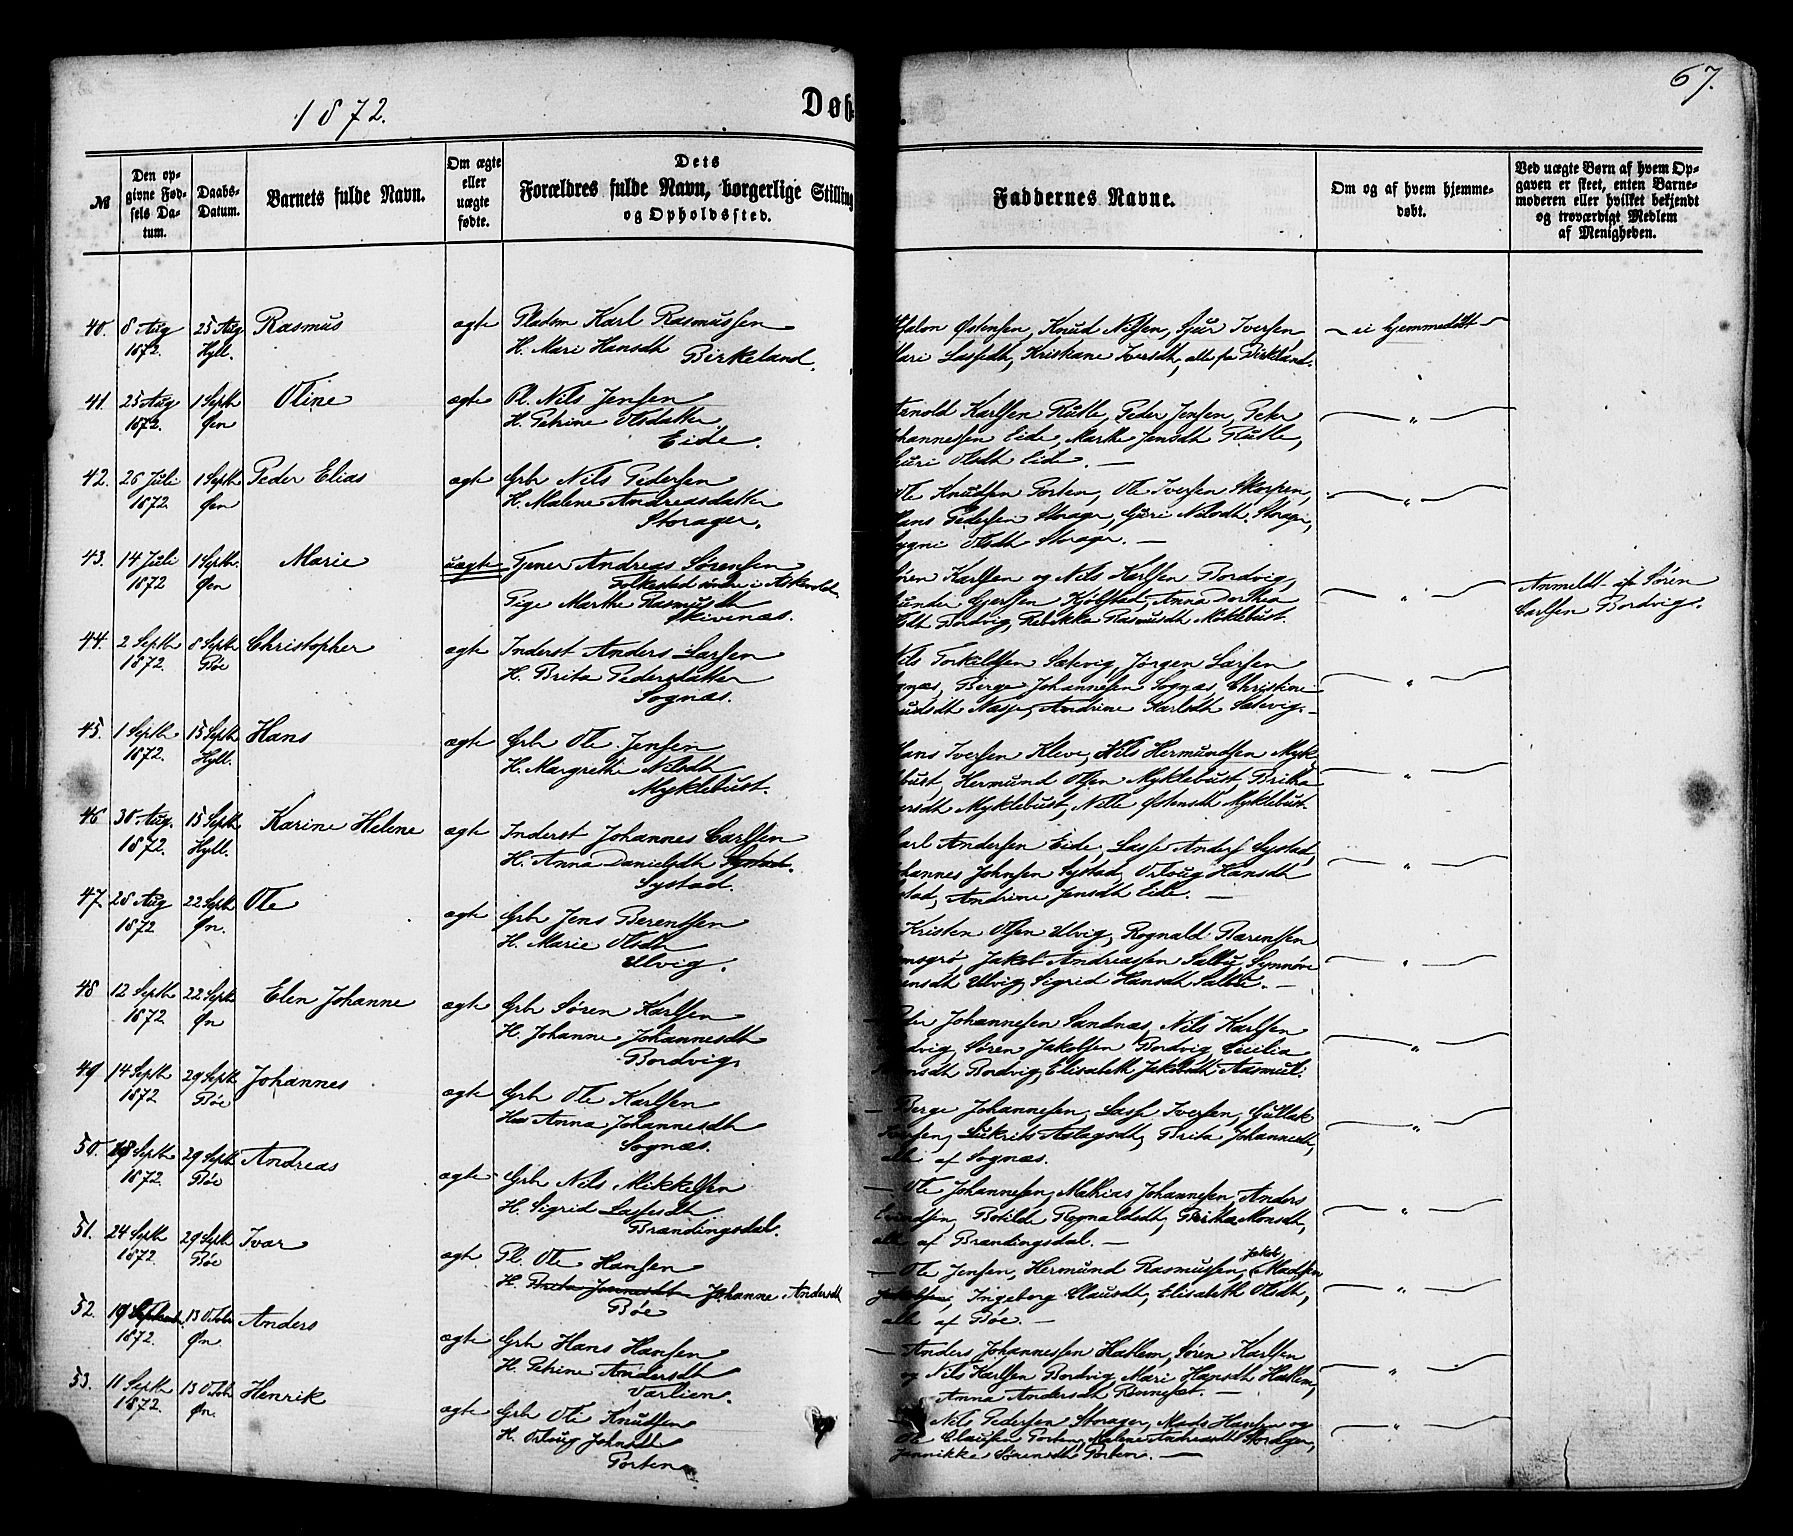 1872.
Døb
67.
№
Den op-
givne Fød-
sels Da-
tum.
Daabs-
Datum.
Barnets fulde Navn.
Om ægte
eller
uægte
fødte.
Dets
Forældres fulde Navn, borgerlige Stilling
og Opholdssted.
Faddernes Navne.
Om og af hvem hjemme-
døbt.
Ved uægte Børn af hvem Op-
gaven er skeet, enten Barne-
moderen eller hvilket bekjendt
og troværdigt Medlem
af Menigheden.
40. 8 Aug 25 Aug Rasmus ægte Pladsm Karl Rasmussen
1872. Hyll. H. Mari Hansdt Birkeland.
Østensen, Knud Nilsen, Sjur Iversen, ei hjemmedøbt
Mari Lassedt, Kristiane Iversdt, alle fra Birkland.
41. 25 Aug 1 Septb Oline ægte Pl. Nils Jensen
1872. Øen H. Petrine Olsdatter
Eide.
Arnold Karlsen Rutle, Peder Jensen, Peter "
Johannessen Eide, Marthe Jensdt Rutle,
Guri Olsdt Eide. —
42. 26 Juli 1 Septb Peder Elias ægte Grb Nils Pedersen
1872. Øen H. Malene Andreasdatter
Storager.
Ole Knudsen Porten, Ole Iversen Skorpen, "
Hans Pedersen Storager, Guri Nilsdt Storager,
Olsdt Storager. —
43. 14 Juli 1 Septb. Marie uægte Tjener Andreas Sørensen
1872 Øen Folkestad indre i Askevold
Pige Marthe Rasmusdt
Skivenæs.
Søren Karlsen og Nils Karlsen Bordvig, "
Gunder Kjølstad, Anna Dorthea
Bordvig, Rebekka Rasmusdt Myklebust.
Anmeldt af Søren
Carlsen Bordvig.
44. 2 Septb 8 Septb Christopher ægte Inderst Anders Larsen
1872. Bøe H. Brita Pedersdatter
Sognæs.
Nils Torkildsen Sætevig, Jørgen Larsen "
Sognæs, Berge Johannesen Sognæs, Christine
Knudsdt Næsje, Andrine Karlsdt Sætevig. —
45. 1 Septb 15 Septb Hans ægte Grb Ole Jensen
1872. Hyll. H. Margrethe Nilsdt
Myklebust.
Hans Iversen Kleve, Nils Hermundsen Mykle- "
bust, Hermund Olsen Myklebust, Britha
Iversdt Myklebust, Nille Østensdt Myklebust.
46 30 Aug. 15 Septb Karine Helene ægte Inderst Johannes Carlsen
1872. Hyll. H. Anna Danielsdt Systad.
Systad.
Carl Andersen Eide, Lasse Anders. Systad, "
Johannes Johnsen Systad, Orlaug Hansdt
Systad, Andrine Jensdt Eide. —
47. 28 Aug 22 Septb Ole ægte Grb Jens Berentsen
1872 Øn. H. Marie Olsdt
Ulvig.
Kristen Olsen Ulvig, Rognald Bærensen "
Jakob Andreassen Salbu, Synnøve
Ulvig, Sigrid Hansdt Salbu. —
48 12 Septb 22 Septb Elen Johanne ægte Grb Søren Karlsen
1872 Øn H. Johanne Johannesdt
Bordvig
Peder Johannesen Sandnæs, Nils Karlsen "
Bordvig, Søren Jakobsen Bordvig, Cecilia
Bordvig, Elisabeth Jakobsdt Aasmul.
49 14 Septb 29 Septb Johannes ægte Grb Ole Karlsen
1872 Bøe Hus Anna Johannesdt
Sognæs.
— Berge Johannesen, Lasse Iversen, Gullak "
Iversen, Lukrits Aslagsdt, Brita Johannesdt,
alle af Sognæs.
50. 18 Septb 29 Septb Andreas ægte Grb Nils Mikkelsen
1872. Bøe H. Sigrid Lassesdt
Brandingsdal.
— Ole Johannesen, Mathias Johannesen, Anders "
Eivindsen, Botilde Rognaldsdt, Britha Monsdt,
alle af Brandingsdal. —
51. 24 Septb 29 Septb Ivar ægte Pl. Ole Hansen
1872. Bøe H. Brita Jonnesdt Johanne Andersdt
Bøe
— Ole Jensen, Hermund Rasmussen, Jakob Madsen "
Jakobsen, Ingeborg Clausdt, Elisabeth Olsdt,
alle af Bøe. —
52. 19 Septemb 13 Octobr Anders ægte Grb Hans Hansen
1872. Øn. H. Petrine Andersdt
Varlien.
— Anders Johannessen Hatlem, Søren Karlsen "
og Nils Karlsen Bordvig, Mari Hansdt Hatlem,
Anna Andersdt Rønneset. —
53. 11 Septb 13 Octobr Henrik ægte Grb Ole Knudsen
1872. Øn. H. Orlaug Johnsdt
Porten
— Nils Pedersen Storager, Mads Hansen og "
Ole Clausen Porten, Malene Andreasdt Storager,
Jennikke Sørensdt Porten. —